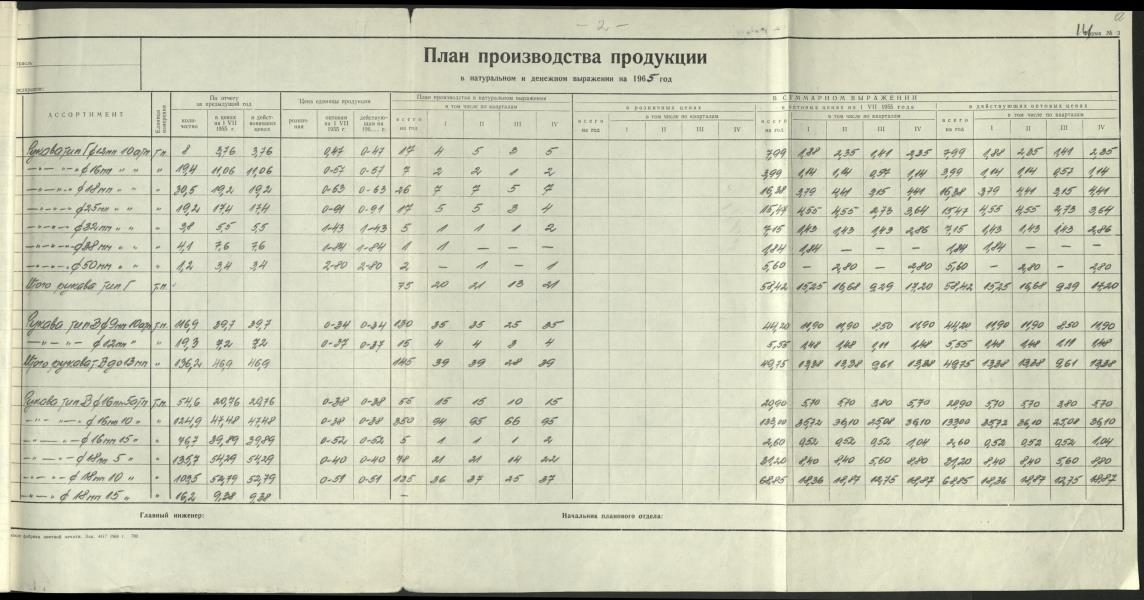 — 2 —
14
Форма № 3
План производства продукции
в натуральном и денежном выражении на 1965 год
АССОРТИМЕНТ
Единица измерения
По отчету за предыдущий год
количество
в ценах на 1 VII 1955 г.
в действовавших ценах
Цена единицы продукции
розничная
оптовая на 1 VII 1955 г.
действующая на 196.... г.
План производства в натуральном выражении
всего на год
в том числе по кварталам
I II III IV
В СУММАРНОМ ВЫРАЖЕНИИ
в розничных ценах
всего на год
в том числе по кварталам
I II III IV
в оптовых ценах на 1 VII 1955 года
всего на год
в том числе по кварталам
I II III IV
в действующих оптовых ценах
всего на год
в том числе по кварталам
I II III IV
Рукава тип Г ф 12мм 10 атм т.м. 8 3,76 3,76 0,47 0-47 17 4 5 3 5 7,99 1,88 2,35 1,41 2,35 7,99 1,88 2,35 1,41 2,35
—„— —„— ф 16мм „ „ „ 19,4 11,06 11,06 0-57 0-57 7 2 2 1 2 3,99 1,14 1,14 0,57 1,14 3,99 1,14 1,14 0,57 1,14
—„—„— ф 18мм „ „ „ 30,5 19,2 19,2 0-63 0-63 26 7 7 5 7 16,38 3,79 4,41 3,15 4,41 16,38 3,79 4,41 3,15 4,41
—„—„— ф 25мм „ „ „ 19,2 17,4 17,4 0-91 0-91 17 5 5 3 4 15,47 4,55 4,55 2,73 3,64 15,47 4,55 4,55 2,73 3,64
—„—„— ф 32мм „ „ „ 3,8 5,5 5,5 1-43 1-43 5 1 1 1 2 7,15 1,43 1,43 1,43 2,86 7,15 1,43 1,43 1,43 2,86
—„—„— ф 38мм „ „ „ 4,1 7,6 7,6 1-84 1-84 1 1 — — — 1,84 1,84 — — — 1,84 1,84 — — —
—„—„— ф 50мм „ „ „ 1,2 3,4 3,4 2-80 2-80 2 — 1 — 1 5,60 — 2,80 — 2,80 5,60 — 2,80 — 2,80
Итого рукава тип Г т.м. 75 20 21 13 21 58,42 15,25 16,68 9,29 17,20 58,42 15,25 16,68 9,29 17,20
Рукава тип В ф 9мм 10 атм т.м. 116,9 39,7 39,7 0-34 0-34 130 35 35 25 35 44,20 11,90 11,90 8,50 11,90 44,20 11,90 11,90 8,50 11,90
—„— —„— ф 12мм „ „ 19,3 7,2 7,2 0-37 0-37 15 4 4 3 4 5,55 1,48 1,48 1,11 1,48 5,55 1,48 1,48 1,11 1,48
Итого рукава т. В до 13мм „ 136,2 46,9 46,9 145 39 39 28 39 49,75 13,38 13,38 9,61 13,38 49,75 13,38 13,38 9,61 13,38
Рукава тип В ф 16мм 5 атм т.м. 54,6 20,76 20,76 0-38 0-38 55 15 15 10 15 20,90 5,70 5,70 3,80 5,70 20,90 5,70 5,70 3,80 5,70
—„— —„— ф 16мм 10 „ „ 124,9 47,48 47,48 0-38 0-38 350 94 95 66 95 133,00 35,72 36,10 25,08 36,10 133,00 35,72 36,10 25,08 36,10
—„— —„— ф 16мм 15 „ „ 76,7 39,89 39,89 0-52 0-52 5 1 1 1 2 2,60 0,52 0,52 0,52 1,04 2,60 0,52 0,52 0,52 1,04
—„— —„— ф 18мм 5 „ „ 135,7 54,29 54,29 0-40 0-40 78 21 21 14 22 31,20 8,40 8,40 5,60 8,80 31,20 8,40 8,40 5,60 8,80
—„— —„— ф 18мм 10 „ „ 103,5 52,79 52,79 0-51 0-51 135 36 37 25 37 68,85 18,36 18,87 12,75 18,87 68,85 18,36 18,87 12,75 18,87
—„— —„— ф 18мм 15 „ „ 16,2 9,38 9,38 —
Главный инженер:
Начальник планового отдела:
фабрика цветной печати. Зак. 4417 1964 г. 700